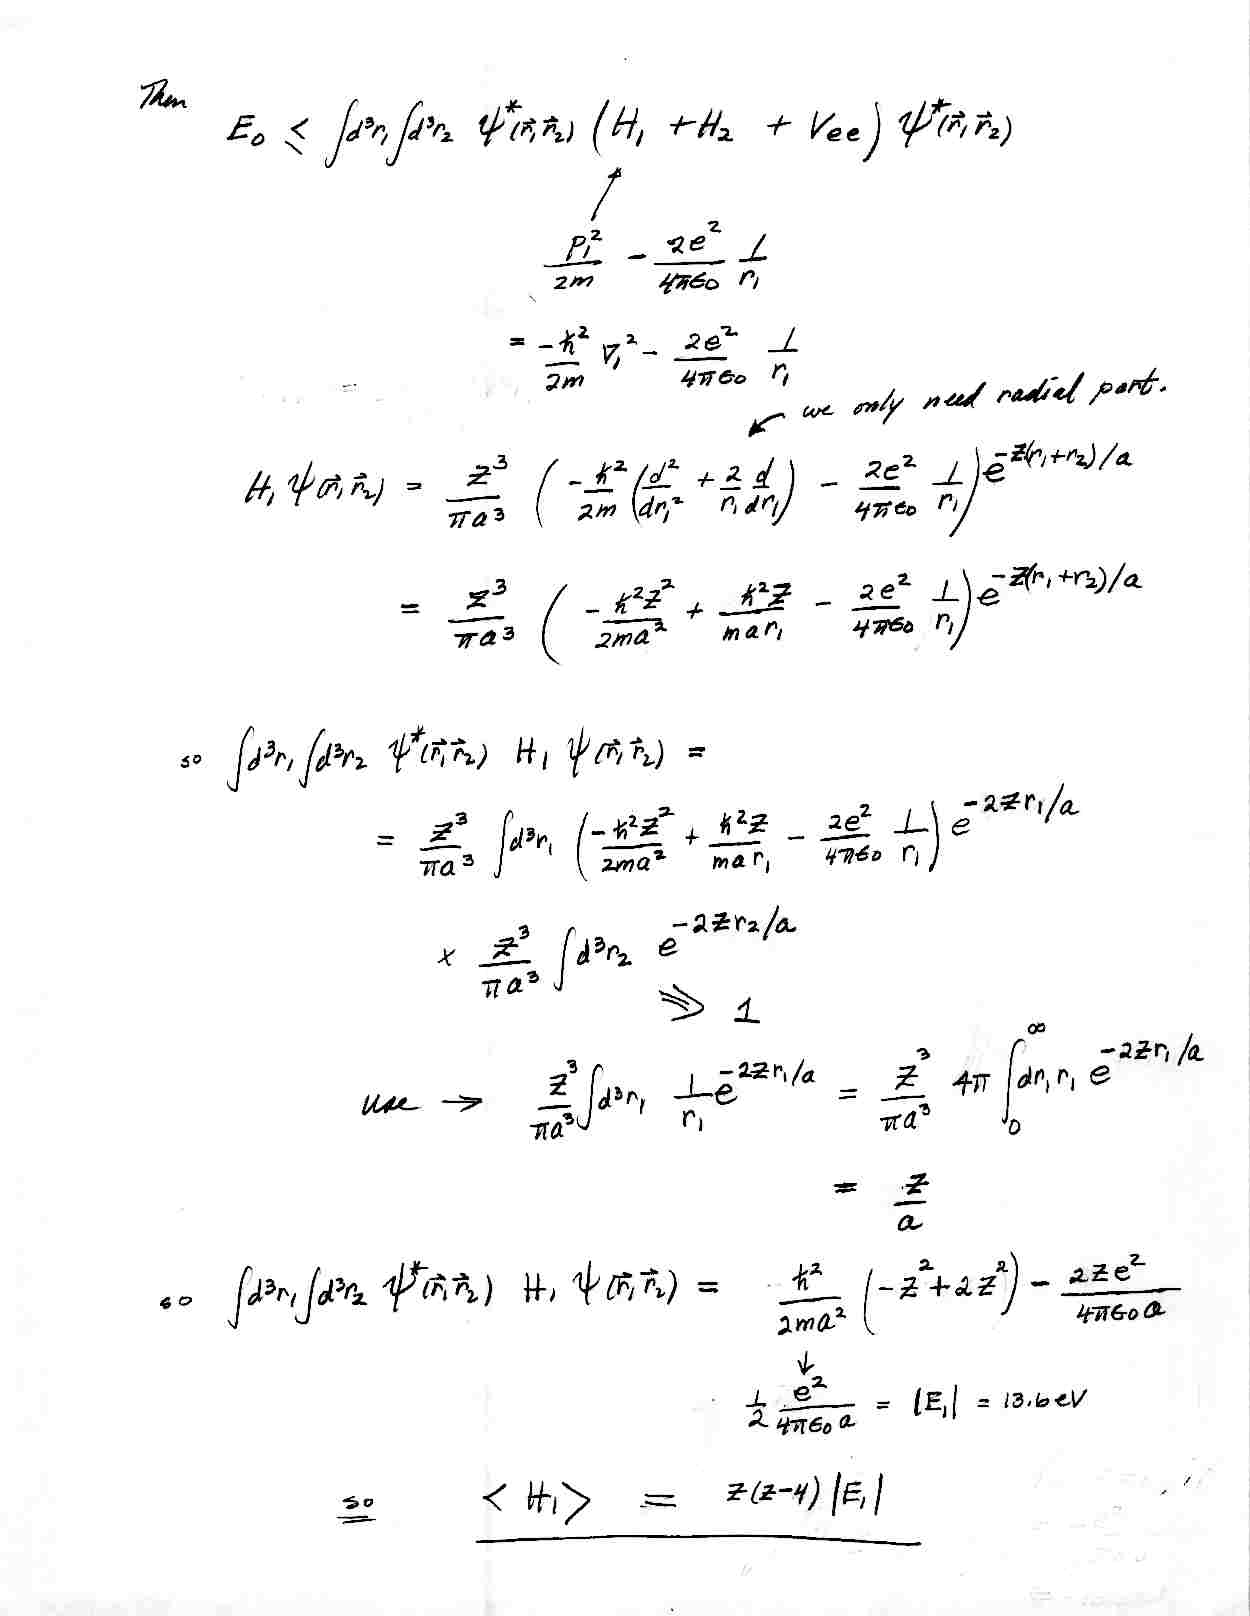 Then
E₀ ≤ ∫d³r₁∫d³r₂ ψ*(r⃗₁r⃗₂) (H₁ + H₂ + Vee) ψ*(r⃗₁r⃗₂)
P₁²/2m − 2e²/4πε₀ 1/r₁
= −ħ²/2m ∇₁² − 2e²/4πε₀ 1/r₁
↙ we only need radial part.
H₁ψ(r⃗₁r⃗₂) = Z³/πa³ (−ħ²/2m (d²/dr₁² + 2/r₁ d/dr₁) − 2e²/4πε₀ 1/r₁) e^{−Z(r₁+r₂)/a}
= Z³/πa³ (−ħ²Z²/2ma² + ħ²Z/mar₁ − 2e²/4πε₀ 1/r₁) e^{−Z(r₁+r₂)/a}
so ∫d³r₁∫d³r₂ ψ*(r⃗₁r⃗₂) H₁ ψ(r⃗₁r⃗₂) =
= Z³/πa³ ∫d³r₁ (−ħ²Z²/2ma² + ħ²Z/mar₁ − 2e²/4πε₀ 1/r₁) e^{−2Zr₁/a}
× Z³/πa³ ∫d³r₂ e^{−2Zr₂/a}
⇒ 1
use → Z³/πa³ ∫d³r₁ 1/r₁ e^{−2Zr₁/a} = Z³/πa³ 4π ∫₀^∞ dr₁ r₁ e^{−2Zr₁/a}
= Z/a
so ∫d³r₁∫d³r₂ ψ*(r⃗₁r⃗₂) H₁ ψ(r⃗₁r⃗₂) = ħ²/2ma² (−Z² + 2Z²) − 2Ze²/4πε₀a
↓
1/2 e²/4πε₀a = |E₁| = 13.6eV
so <H₁> = Z(Z−4)|E₁|